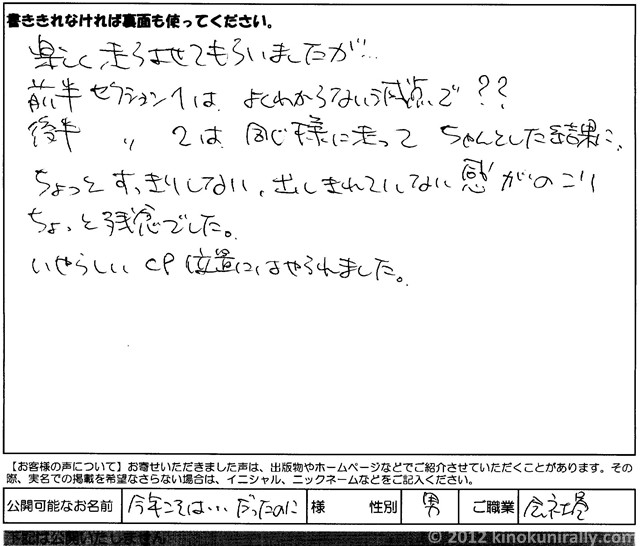 書ききれなければ裏面も使ってください。
楽しく走らせてもらいましたが…
前半セクション1は、よくわからない減点で??
後半 〃 2は 同じ様に走って ちゃんとした結果に、
ちょっとすっきりしない、出しきれていない感がのこり
ちょっと残念でした。
いやらしいCP位置にはやられました。
【お客様の声について】お寄せいただきました声は、出版物やホームページなどでご紹介させていただくことがあります。その
際、実名での掲載を希望なさらない場合は、イニシャル、ニックネームなどをご記入ください。
公開可能なお名前 今年こそは…だったのに 様 性別 男 ご職業 会社員
下記は公開いたしません
© 2012 kinokunirally.com